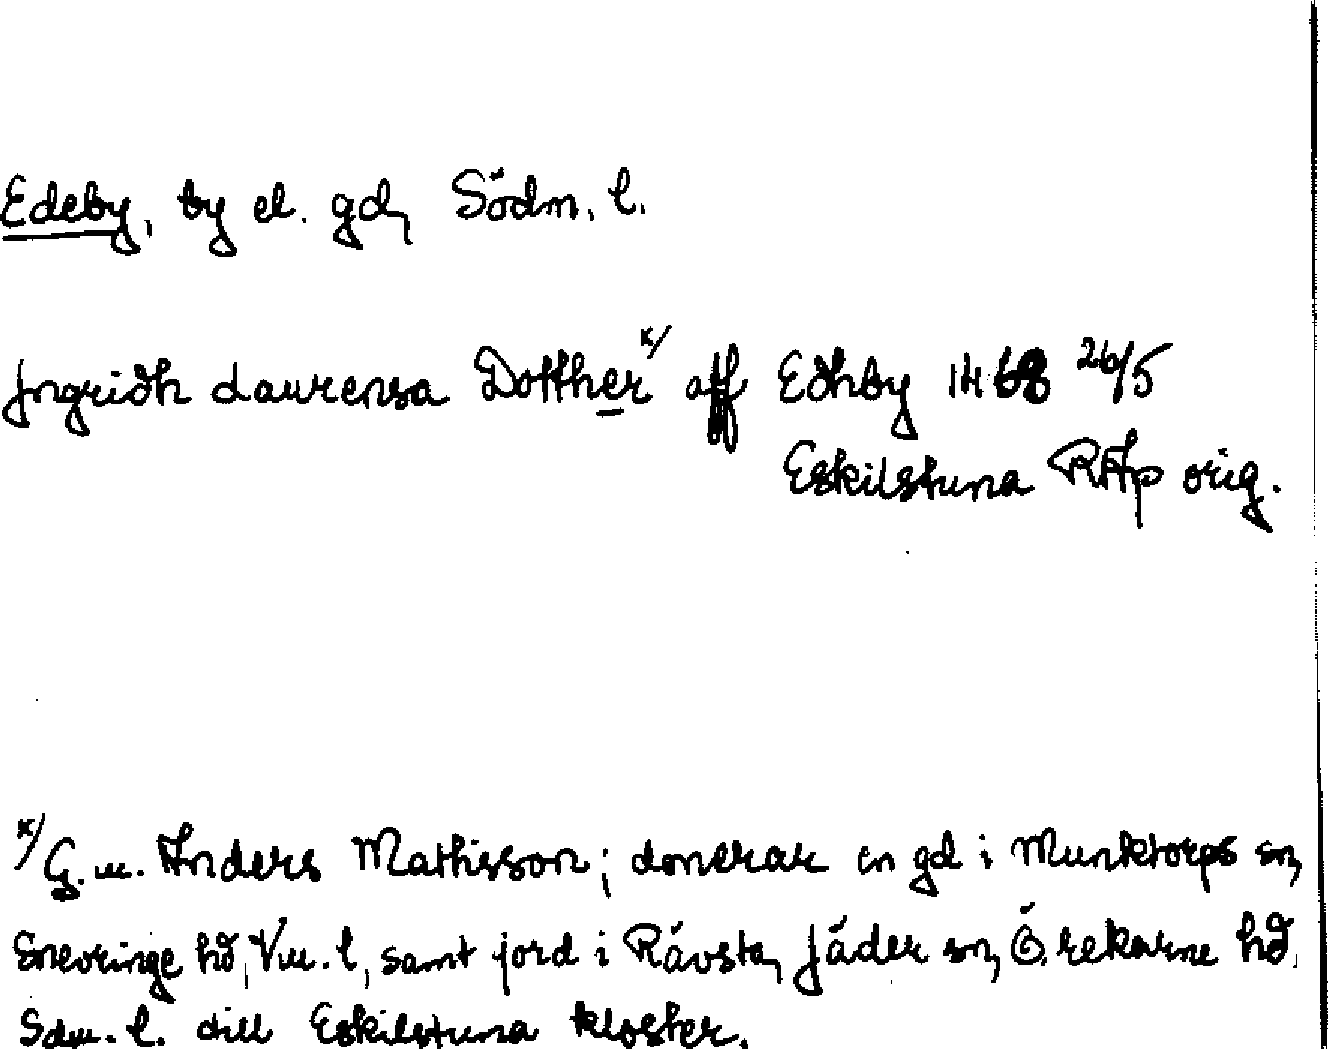 Edeby, by el. gd, Södm. l.
Jngridh Laurensa Dotther x/ aff Edhby 1468 26/5
Eskilstuna RAp orig.
x/ G. m. Anders Mathisson; donerar en gd i Munktorps sn,
Snevringe hd, Vm. l, samt jord i Rävsta, Jäder sn, Ö. rekarne hd,
Sdm. l. till Eskilstuna kloster.